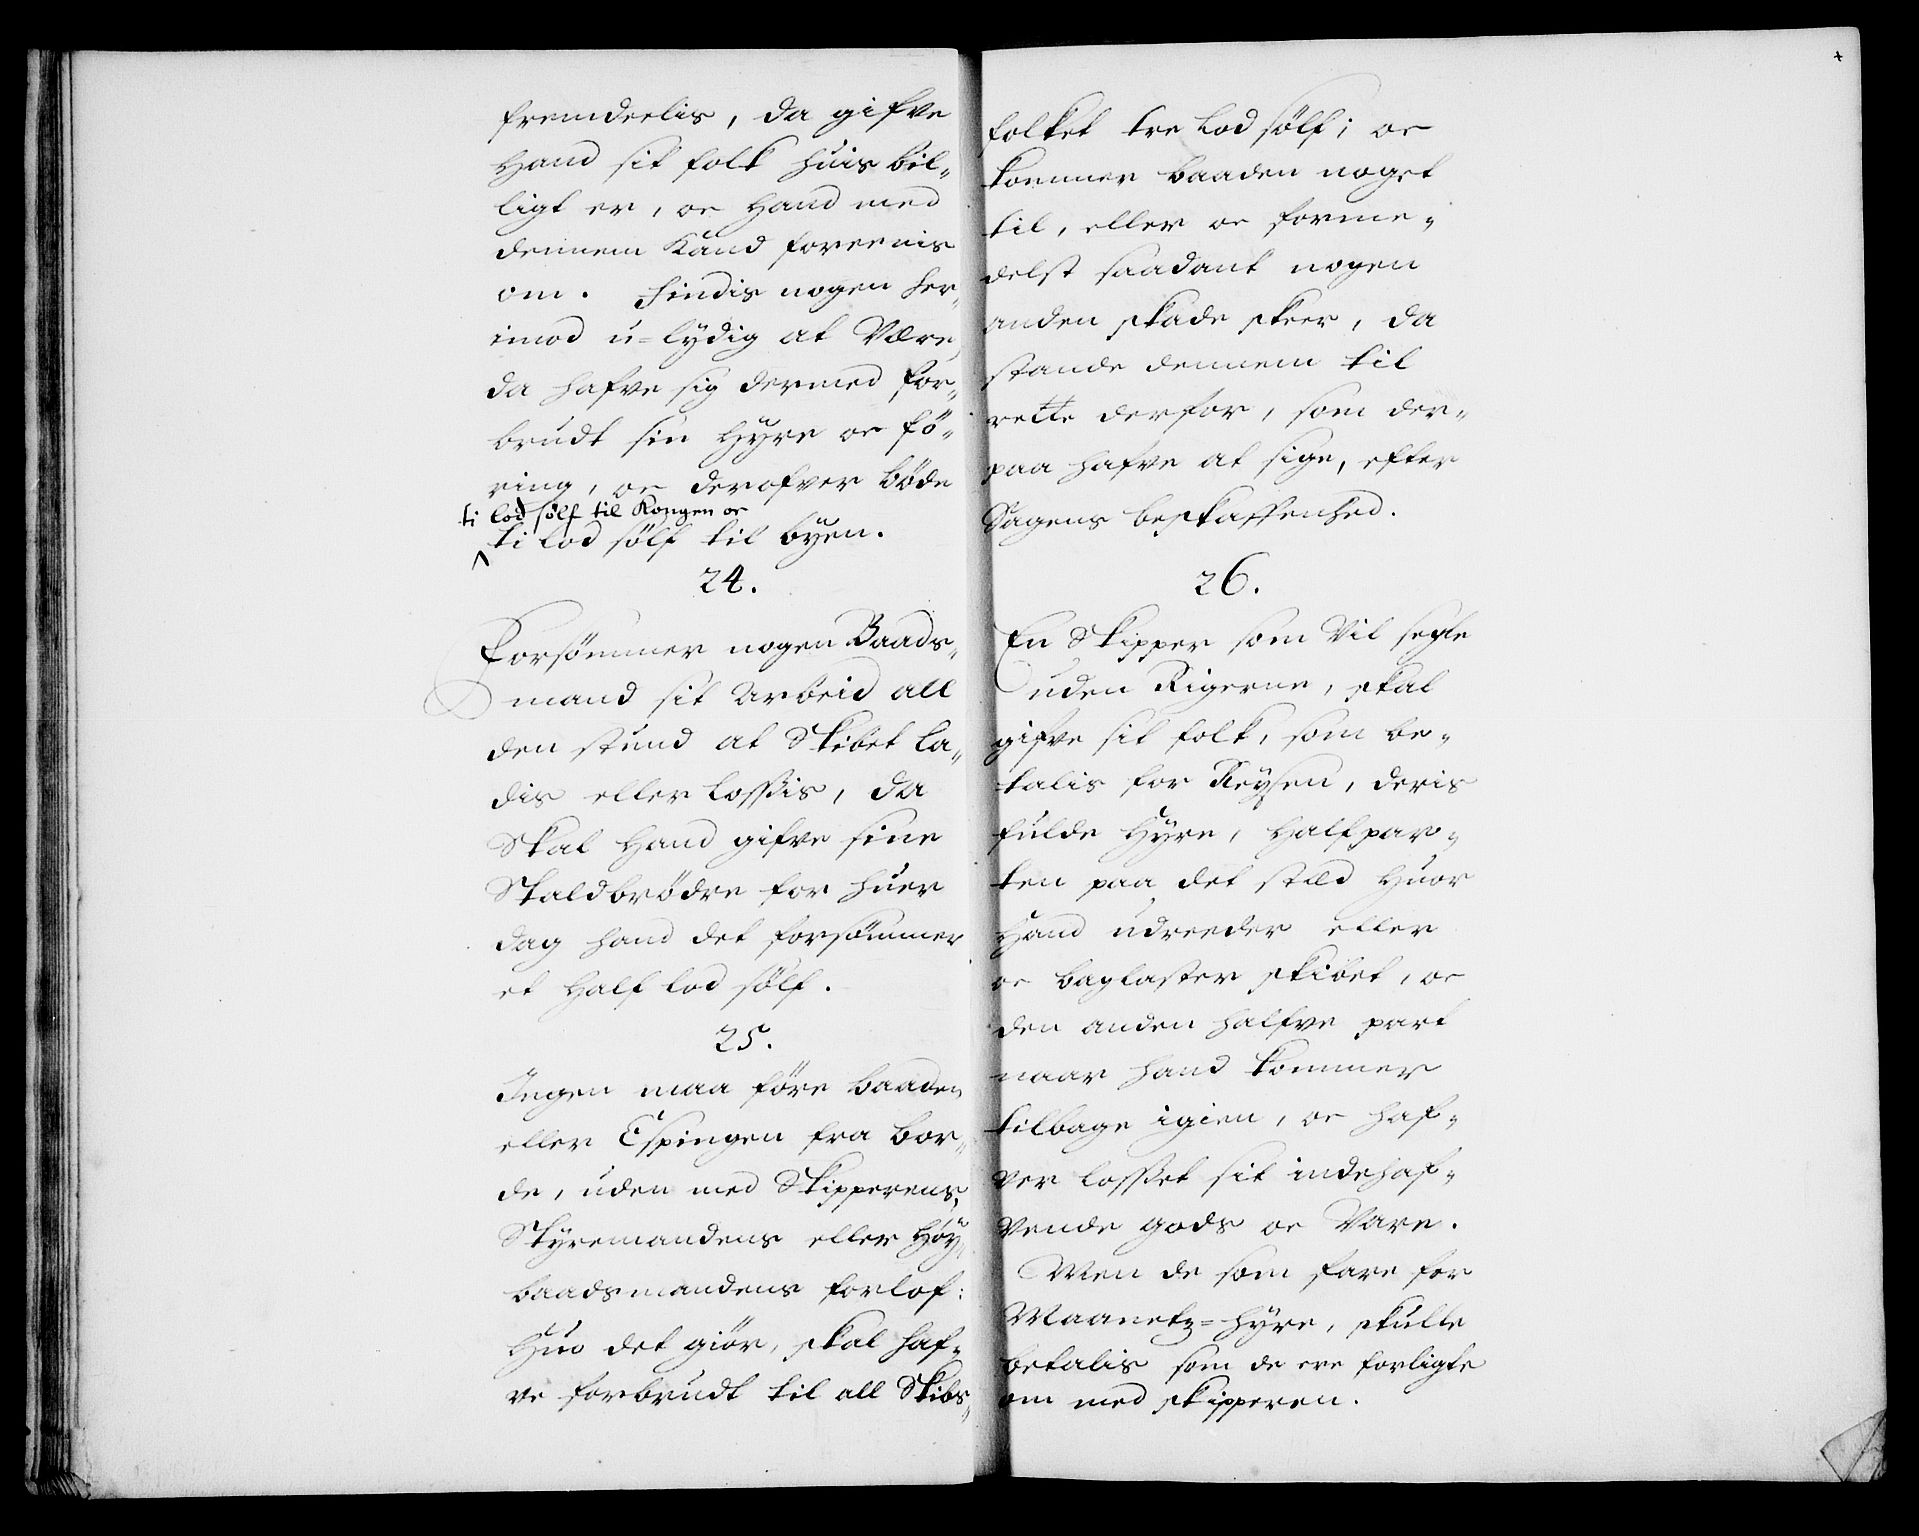 fremdeelis, da gifve
Hand sit folk huis bil„
ligt er, oc Hand med
dennem Kand foreenis
om. Findis nogen her„
imod u=lydig at Være,
da hafve sig dermed for„
brudt sin Hyre oc fö„
ring, oc derofver bøde
ti lod sølf til Kongen oc
ti lod sølf til byen.
24.
Forsömmer nogen Baads„
mand sit Arbeid all
den stund at Skibet la„
dis eller lossis, da
Skal Hand gifve sine
Staldbrödre for huer
dag hand det forsömmer
et Half lod sölf.
25.
Ingen maa före baaden
eller Espingen fra bor„
de, uden med Skipperens,
Styremandens eller Høy„
baadsmandens forlof:
Huo det giör, skal haf„
ve forbrudt til all Skibs„
folket tre lod sölf; oc
kommer baaden noget
til, eller oc forme„
delst saadant nogen
anden skade skeer, da
stande dennem til
rette derfor, som der„
paa hafve at sige, efter
Sagens beskaffenhed.
26.
En Skipper som Vil segle
uden Rigerne, skal
gifve sit folk, som be„
talis for Reysen, deris
fulde Hyre, Halfpar„
ten paa det stæd Huor
Hand udreeder eller
oc baglaster skibet, oc
den anden halfve part
naar hand kommer
tilbage igien, oc haf„
ver losset sit indehaf„
vende gods oc Vare.
Men de som fare for
Maanetz=hyre, skulle
betalis som de ere forligte
om med skipperen.